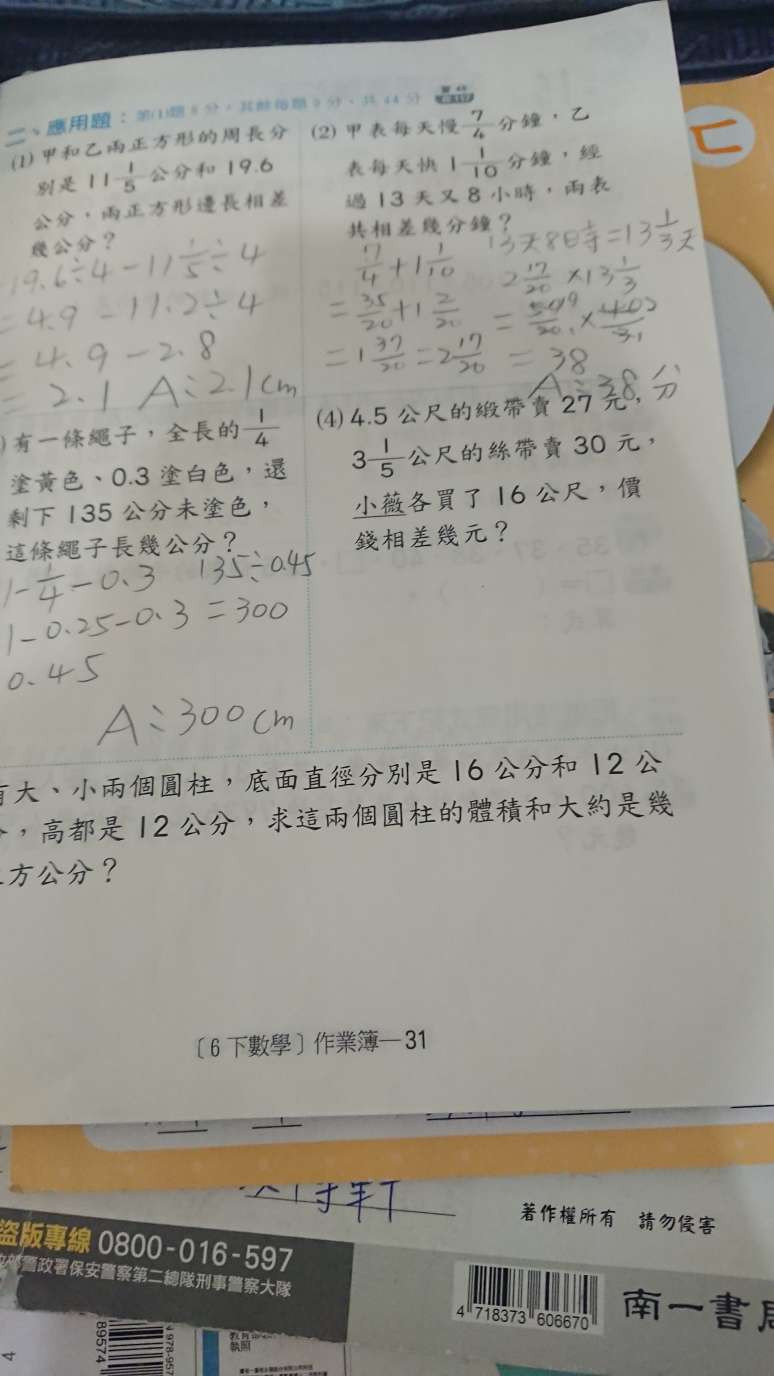 二、應用題：第(1)題8分，其餘每題9分，共44分
(1) 甲和乙兩正方形的周長分
別是 11 1/5 公分和 19.6
公分，兩正方形邊長相差
幾公分？
19.6÷4-11 1/5÷4
=4.9-11.2÷4
=4.9-2.8
=2.1 A：2.1cm
(2) 甲表每天慢 7/4 分鐘，乙
表每天快 1 1/10 分鐘，經
過 13 天又 8 小時，兩表
共相差幾分鐘？
13天8時=13 1/3天
7/4+1 1/10
=35/20+1 2/20
=1 37/20=2 17/20
2 17/20×13 1/3
=38
A：38分
)有一條繩子，全長的 1/4
塗黃色、0.3 塗白色，還
剩下 135 公分未塗色，
這條繩子長幾公分？
1-1/4-0.3
1-0.25-0.3
0.45
135÷0.45
=300
A：300cm
(4) 4.5 公尺的緞帶賣 27 元，
3 1/5 公尺的絲帶賣 30 元，
小薇各買了 16 公尺，價
錢相差幾元？
有大、小兩個圓柱，底面直徑分別是 16 公分和 12 公
，高都是 12 公分，求這兩個圓柱的體積和大約是幾
方公分？
〔6下數學〕作業簿—31
ㄈ
著作權所有 請勿侵害
盜版專線 0800-016-597
警政署保安警察第二總隊刑事警察大隊
4 718373 606670
南一書局
89574
978-957
執照
4